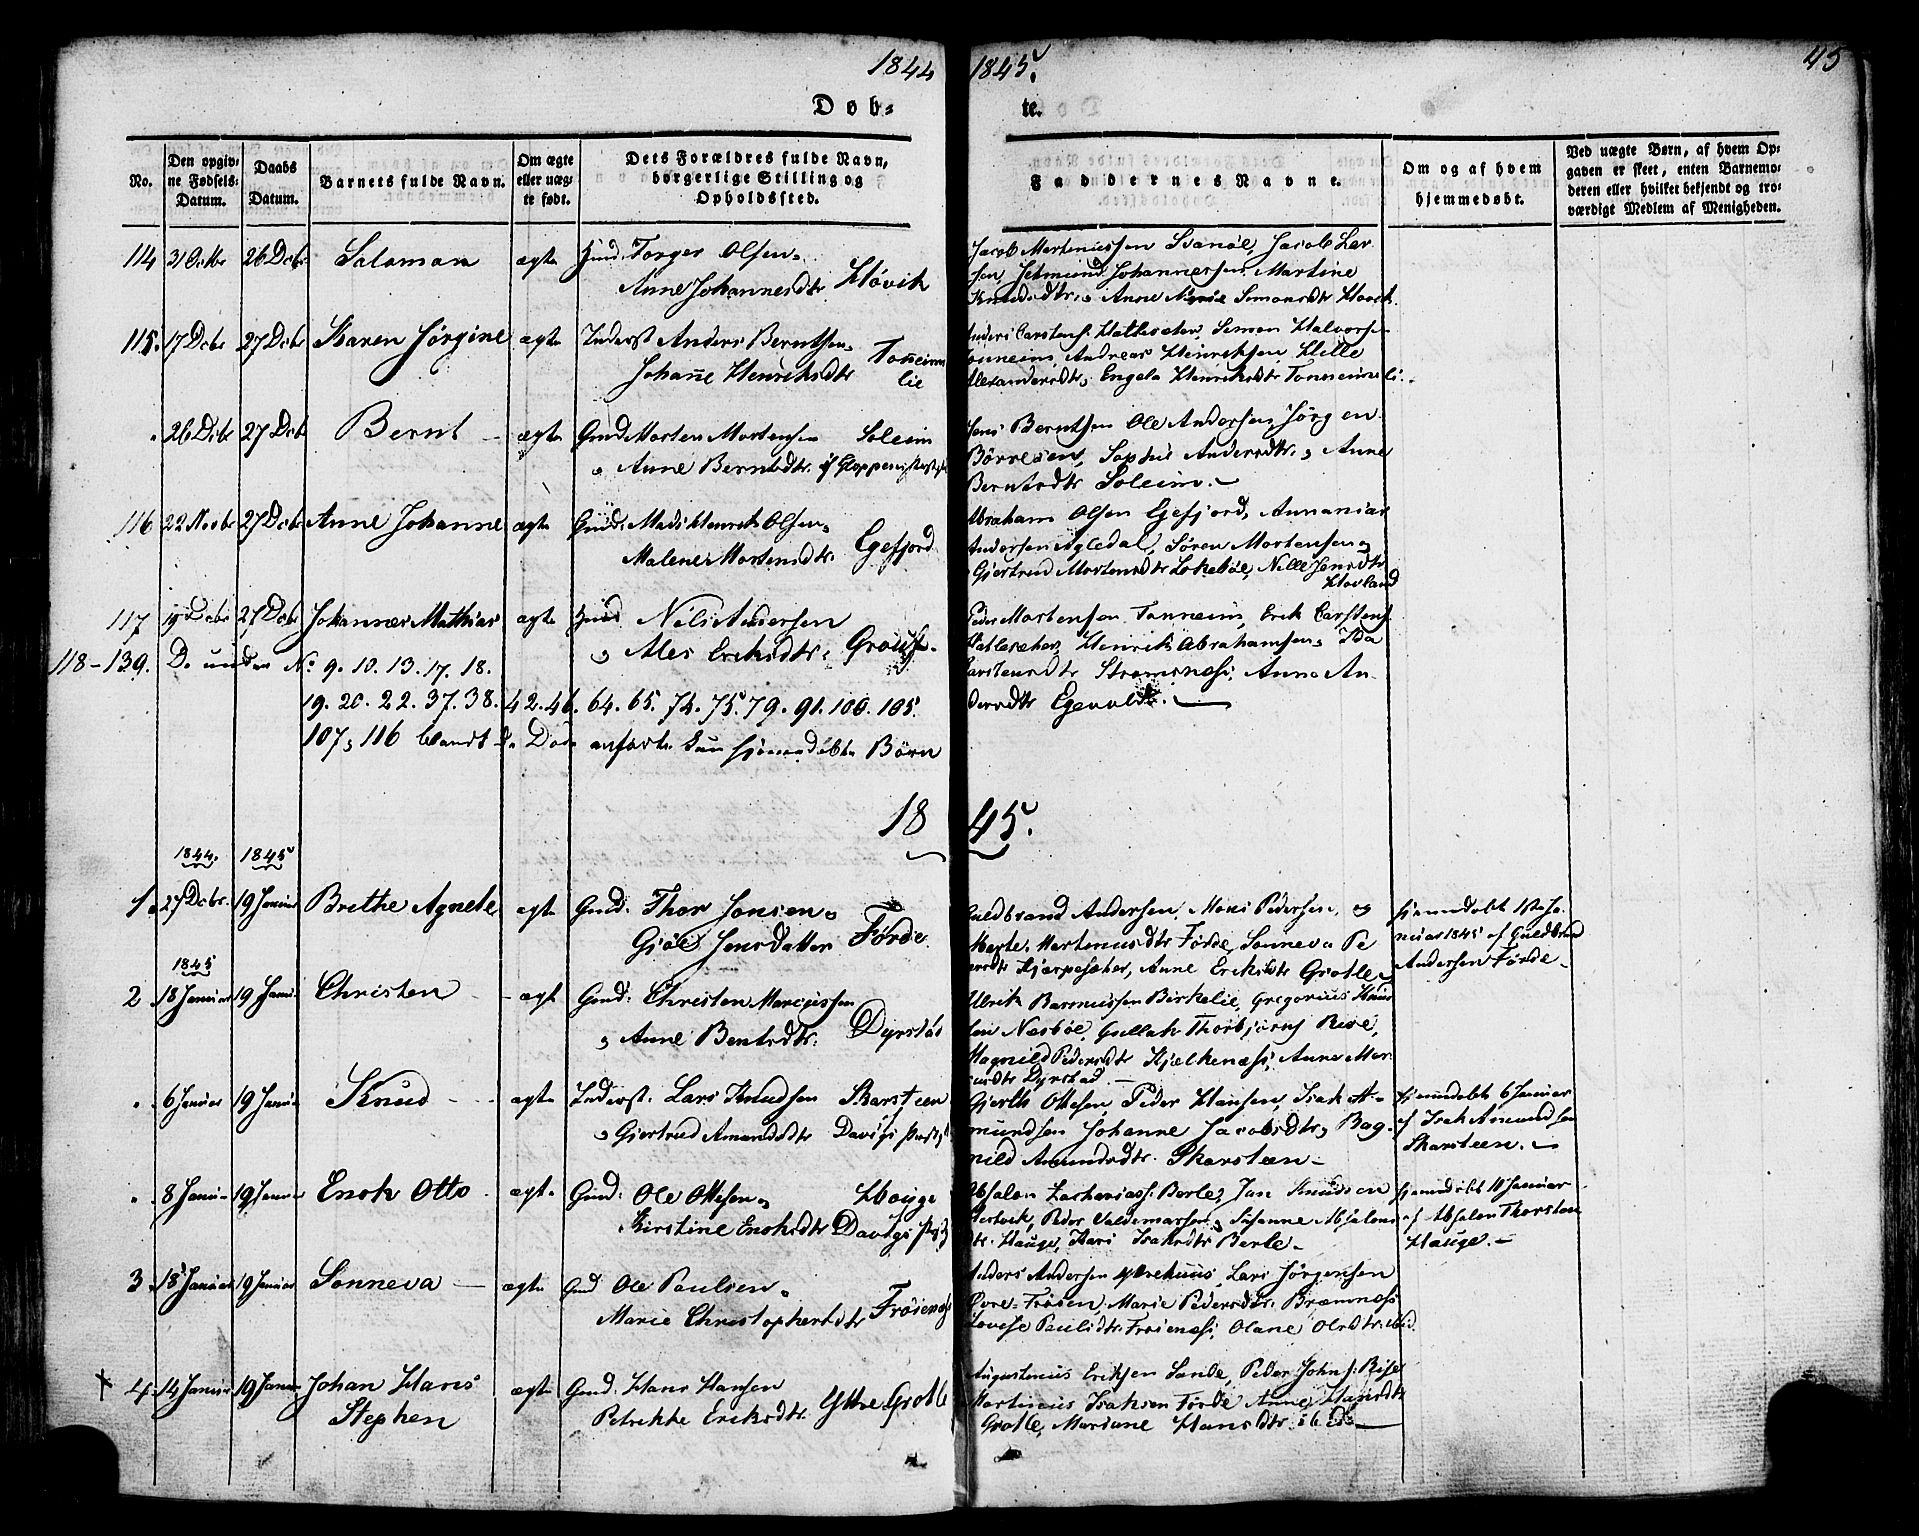 1844
1845.
45
Døb-
te.
No.
Den opgiv-
ne Fødsels-
Datum.
Daabs
Datum.
Barnets fulde Navn.
Om ægte
eller uæg-
te født.
Dets Forældres fulde Navn,
borgerlige Stilling og
Opholdssted.
Faddernes Navne.
Om og af hvem
hjemmedøbt.
Ved uægte Børn, af hvem Op-
gaven er skeet, enten Barnemo-
deren eller hvilket bekjendt og tro-
værdigt Medlem af Menigheden.
114 26 Dcbr Salomon ægte Torger Olsen
Anne Johannesdtr Høvik
Jacob Martinussen Svanøe, Jacob Lar-
sen, Johannessen, Martine
Knudsdtr, Anne Simonsdtr Høvik.
115. 17 Dcbr 27 Dcbr Karen Jørgine ægte Inderst Anders Berntsen
Johañe Henriksdtr
Anders Carstens. Hatleseter, Simon Halvors-
Andreas Henriksen, Hille
Alexandersdtr, Engela Henriksdtr
26 Dcbr 27 Dcbr Bernt ægte Gmd Morten Mortensen Soleim
Anne Berntsdtr. af Gloppens
Jens Berntsen Ole Andersen, Jørgen
Børresen, Sophie Andersdtr, Anne
Berntsdtr Soleim.
116 22 Novbr 27 Dcbr Anne Johanne ægte Gmd. Mads Henrik Olsen
Malene Mortensdtr. Egefjord
Abraham Olsen Egefjord, Annanias
Andersen Agledal, Søren Mortensen
Gjertrud Mortensdtr Lokebøe, Nille Jensdtr
Hovland
117 19 Dcbr 27 Dcbr Johannes Mathias ægte Gmd Nils Andersen
Ales Eriksdtr.
Peder Mortensen Tonneim, Erik Carstens.
Hatleseter, Henrik Abrahamsen, Ida
Carstensdtr Strømsnæs, Anne An-
dersdtr
118-139. Do under No 9. 10. 13. 17. 18.
19. 20. 22. 37. 38. 42. 46. 64. 65. 74. 75. 79. 91. 100. 105.
107, 116 blandt de Døde anførte kun hjemmedøbte Børn
18 45.
1844. 1845
1. 27 Dcbr. 19 Januar Brethe Agnete ægte Gmd. Thor Jonsen
Gjøle Jensdatter Førde.
Guldbrand Andersen, Mons Pedersen, og
Marte Martinusdtr Førde, Sonneva Pe-
dersdtr Hjerpeseter, Anne Eriksdtr Grotle
hjemmedøbt 1ste Ja-
nuar 1845 af Guldbrand
Andersen Førde
1845
2 18 Januar 19 Janu. Christen ægt. Gmd. Christen Marcussen
Anne Bentsdtr. Dyrstad
Ulrik Rasmussen Birkelie, Gregorius Knud-
sen Nesbøe, Gullak Thorbjørns. Rise,
Ragnild Pedersdtr Hjelkenæs, Anne Mar-
cusdtr Dyrstad.
6 Januar 19 Januar Knud ægte Inderst. Lars Knudsen Skarsteen
Gjertrud Amundsdtr Davigs
Gjerth Ottesen, Peder Hansen, Isak A-
mundsen Johanne Jacobsdtr, Rag-
nild Amundsdtr. Skarsteen
hjemmedøbt 6 Januar
af Isak Amundsen
Skarsteen.
8 Janu. 19 Januar Enok Otto ægte Gmd: Ole Ottesen Houge
Kirstine Enoksdtr Davigs
Absalon Zachariass. Berle, Jan Knudsen
Peder Valdemarsen, Susanne Absalons-
dtr. Hauge, Kari Isaksdtr Berle
hjemmedøbt 10 Januar
af Absalon Thorsten
Hauge.
3 18 Januar 19 Januar Sonneva ægte Gmd Ole Paulsen
Marie Christophersdtr Frøienæs
Anders Andersen Myrehuus, Lars Jørgensen
Øvre-Frøien, Marie Pedersdtr. Bræmnæs
Lovise Paulsdtr. Frøienæs, Olane Olsdtr. ibid.
4. 14 Januar 19 Janu. Johan Hans
Stephen ægte Gmd: Hans Hansen
Petrikke Eriksdtr. Yttre Grotle
Augustinus Eriksen Sande, Peder Johns. Rise
Martinus Isaksen Førde Anne Hansdtr
Grotle, Mariane Hansdtr. ibid.